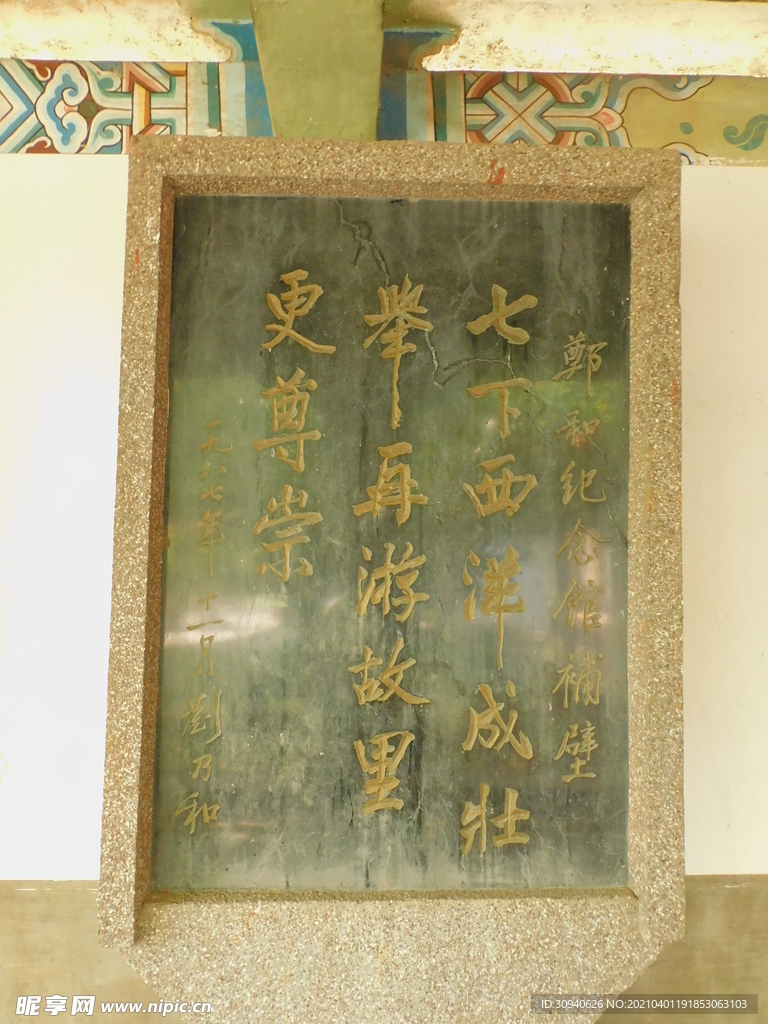 鄭和紀念館補壁
七下西洋成壯
舉再游故里
更尊崇
一九八七年十一月劉乃和
昵享网 www.nipic.cn
ID:30940626 NO:20210401191853063103